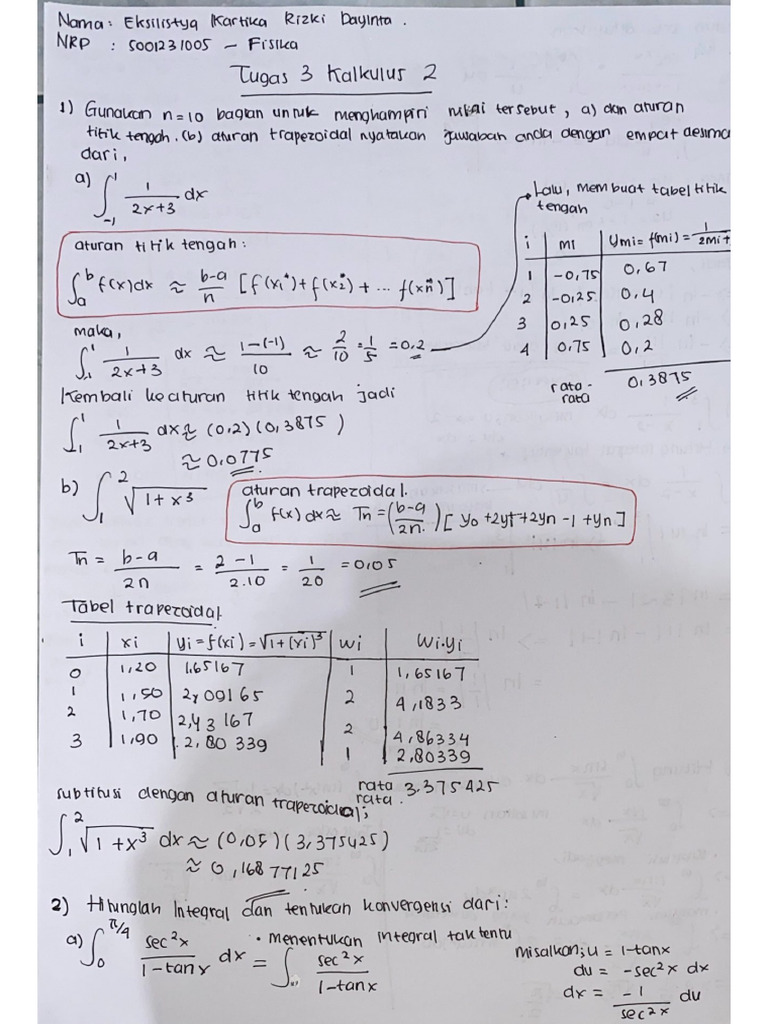 Nama : Eksilistya Kartika Rizki Dayinta .
NRP : 5001231005 – Fisika
Tugas 3 Kalkulus 2
1) Gunakan n=10 bagian untuk menghampiri nilai tersebut , a) dgn aturan
titik tengah. (b) aturan trapezoidal nyatakan jawaban anda dengan empat desima
dari,
a) ∫₋₁¹ 1/(2x+3) dx
aturan titik tengah :
∫ₐᵇ f(x)dx ≈ (b-a)/n [f(x₁*)+f(x₂*)+ ... f(xn*)]
maka,
∫₋₁¹ 1/(2x+3) dx ≈ (1-(-1))/10 ≈ 2/10 = 1/5 = 0.2
Lalu, membuat tabel titik
tengah
i | mi | Ymi = f(mi) = 1/(2mi+
1 | -0,75 | 0,67
2 | -0,25 | 0,4
3 | 0,25 | 0,28
4 | 0,75 | 0,2
rata-rata 0,3875
Kembali ke aturan titik tengah jadi
∫₋₁¹ 1/(2x+3) dx ≈ (0.2)(0,3875)
≈ 0,0775
b) ∫₁² √(1+x³)
aturan trapezoidal.
∫ₐᵇ f(x)dx ≈ Tn = ((b-a)/2n.) [ y₀ +2y1+2yn-1 +yn ]
Tn = (b-a)/2n = (2-1)/2.10 = 1/20 = 0,05
Tabel trapezoidal
i | xi | yi = f(xi) = √(1+(xi)³) | wi | Wi.yi
0 | 1,20 | 1.65167 | 1 | 1,65167
1 | 1,50 | 2,09165 | 2 | 4,1833
2 | 1,70 | 2,43167 | 2 | 4,86334
3 | 1,90 | 2,80339 | 1 | 2,80339
rata rata . 3.375425
substitusi dengan aturan trapezoidal;
∫₁² √(1+x³) dx ≈ (0,05)(3,375425)
≈ 0,16877125
2) Hitunglah Integral dan tentukan konvergensi dari:
a) ∫₀^(π/4) sec²x/(1-tanx) dx = ∫ sec²x/(1-tanx)
• Menentukan integral tak tentu
misalkan; u = 1-tanx
du = -sec²x dx
dx = -1/sec²x du